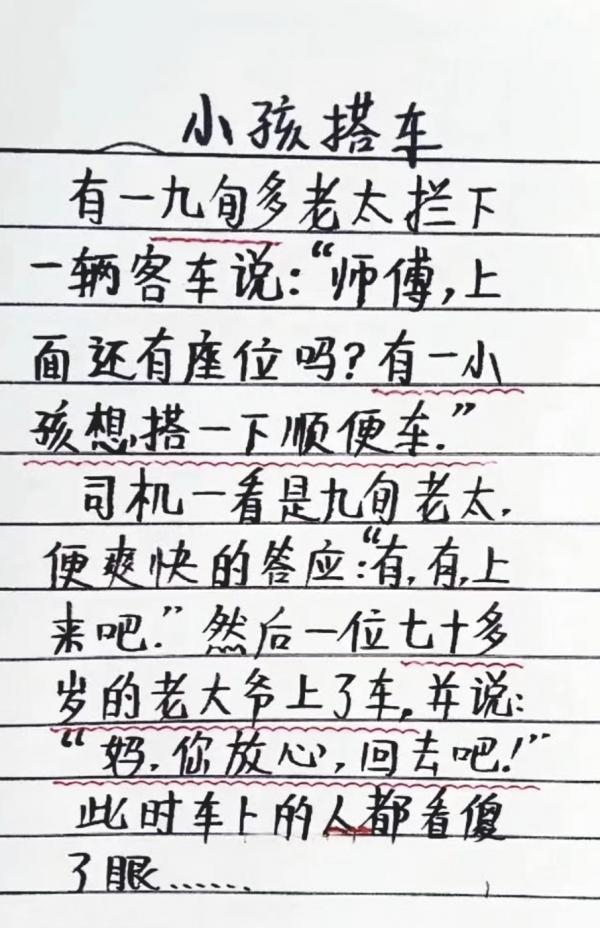 小孩搭车
有一九旬多老太拦下
一辆客车说:“师傅,上
面还有座位吗?有一小
孩想搭一下顺便车.”
司机一看是九旬老太,
便爽快的答应:“有,有,上
来吧.”然后一位七十多
岁的老大爷上了车,并说:
“妈,你放心,回去吧!”
此时车上的人都看傻
了眼……